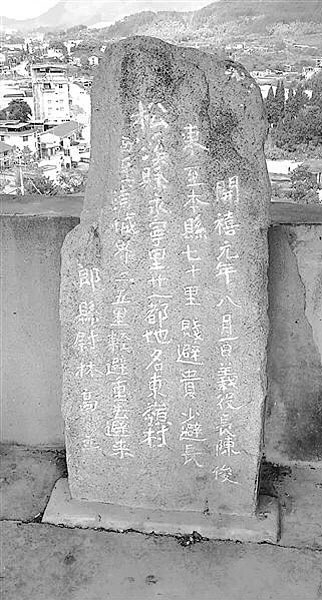 開禧元年八月一日義役長陳俊
東至本縣七十里 賤避貴少避長
松溪縣永寧里廿一都地名東嶺村
西至浦城界二五里輕避重去避來
郎縣尉林高立